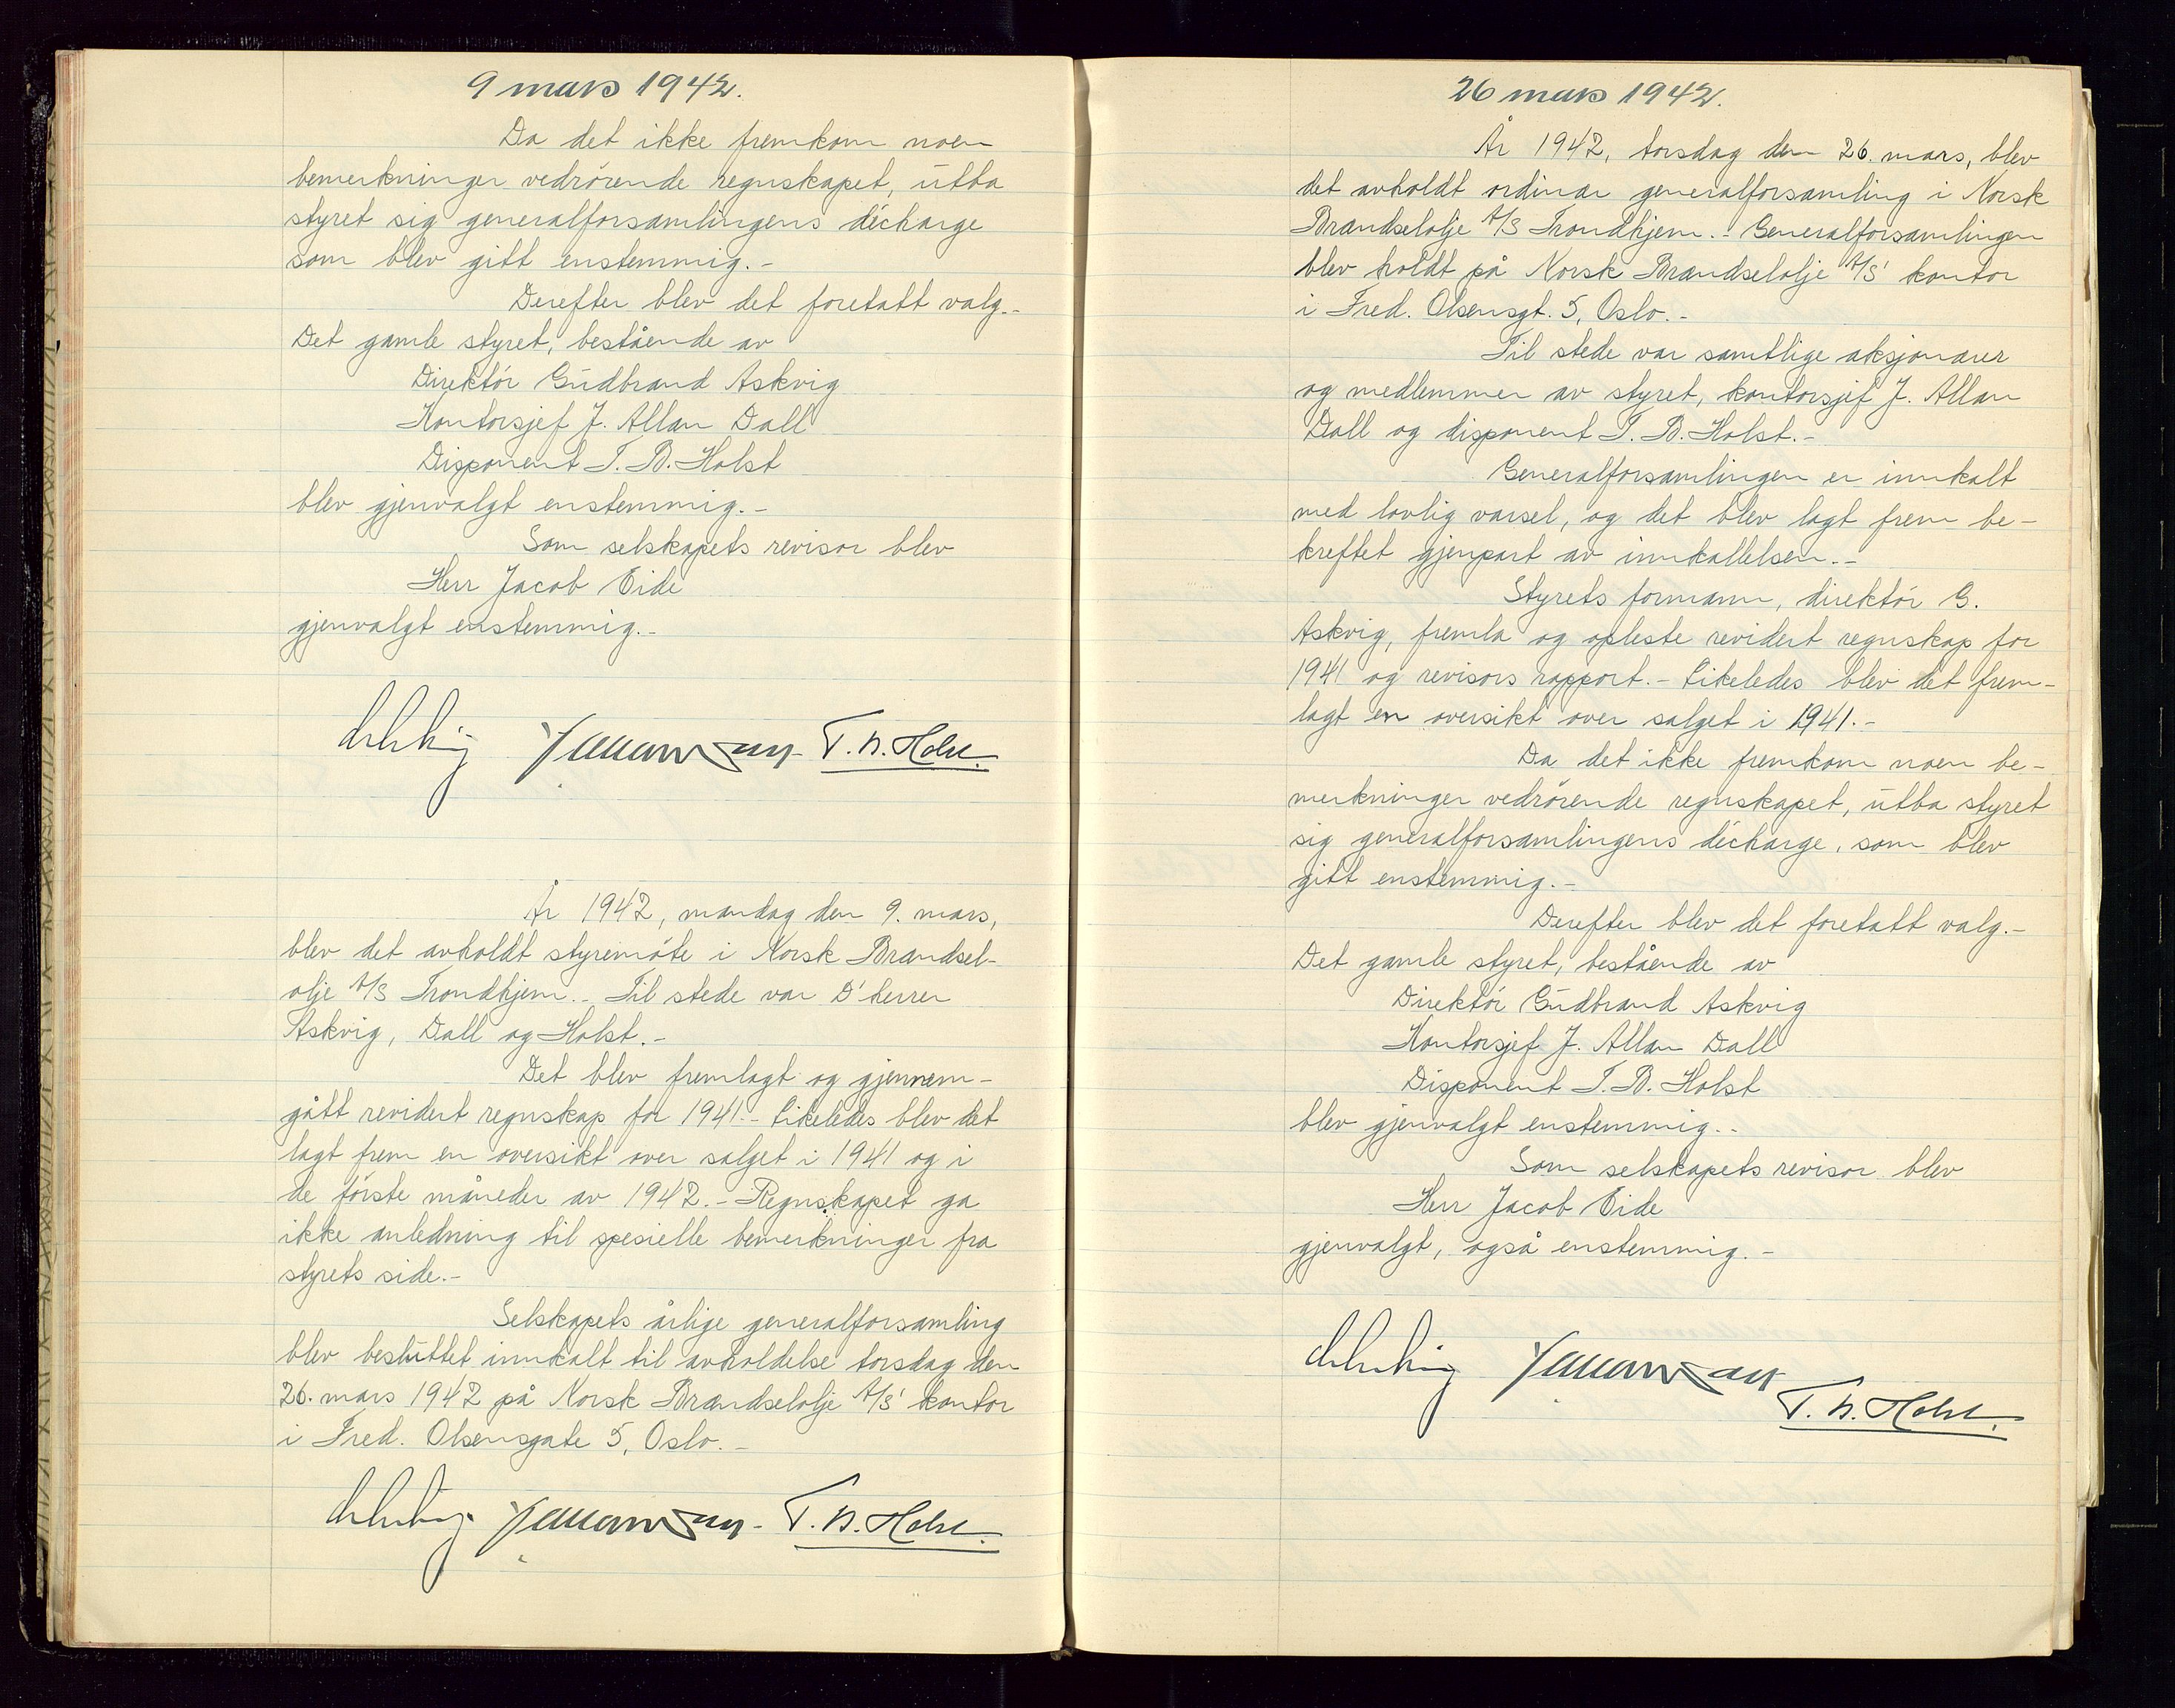 9 mars 1942.
Da det ikke fremkom noen
bemerkninger vedrörende regnskapet, utba
styret sig generalforsamlingens décharge
som blev gitt enstemmig.-
Derefter blev det foretatt valg.-
Det gamle styret, bestående av
Direktör Gudbrand Askvig
Kontorsjef J. Allan Dall
Disponent T. B. Holst
blev gjenvalgt enstemmig.-
Som selskapets revisor blev
Herr Jacob Eide
gjenvalgt enstemmig.-
T. B. Holst.
År 1942, mandag den 9. mars,
blev det avholdt styremöte i Norsk Brændsel-
olje A/S Trondhjem.- Til stede var D'herrer
Askvig, Dall og Holst.-
Det blev fremlagt og gjennem-
gått revidert regnskap for 1941.- Likeledes blev det
lagt frem en oversikt over salget i 1941 og i
de förste måneder av 1942.- Regnskapet ga
ikke anledning til spesielle bemerkninger fra
styrets side.-
Selskapets årlige generalforsamling
blev besluttet innkalt til avholdelse torsdag den
26. mars 1942 på Norsk Brændselolje A/S' kontor
i Fred. Olsensgate 5, Oslo.-
T. B. Holst.
26 mars 1942.
År 1942, torsdag den 26. mars, blev
det avholdt ordinær generalforsamling i Norsk
Brændselolje A/S Trondhjem.- Generalforsamlingen
blev holdt på Norsk Brændselolje A/S' kontor
i Fred. Olsensgt. 5, Oslo.-
Til stede var samtlige aksjonærer
og medlemmer av styret, kontorsjef J. Allan
Dall og disponent T. B. Holst.-
Generalforsamlingen er innkalt
med lovlig varsel, og det blev lagt frem be-
kreftet gjenpart av innkallelsen.-
Styrets formann, direktör G.
Askvig, fremla og opleste revidert regnskap for
1941 og revisors rapport.- Likeledes blev det frem-
lagt en oversikt over salget i 1941.-
Da det ikke fremkom noen be-
merkninger vedrörende regnskapet, utba styret
sig generalforsamlingens décharge, som blev
gitt enstemmig.-
Derefter blev det foretatt valg.-
Det gamle styret, bestående av
Direktör Gudbrand Askvig
Kontorsjef J. Allan Dall
Disponent T. B. Holst
blev gjenvalgt enstemmig.-
Som selskapets revisor blev
Herr Jacob Eide
gjenvalgt, også enstemmig.-
T. B. Holst.